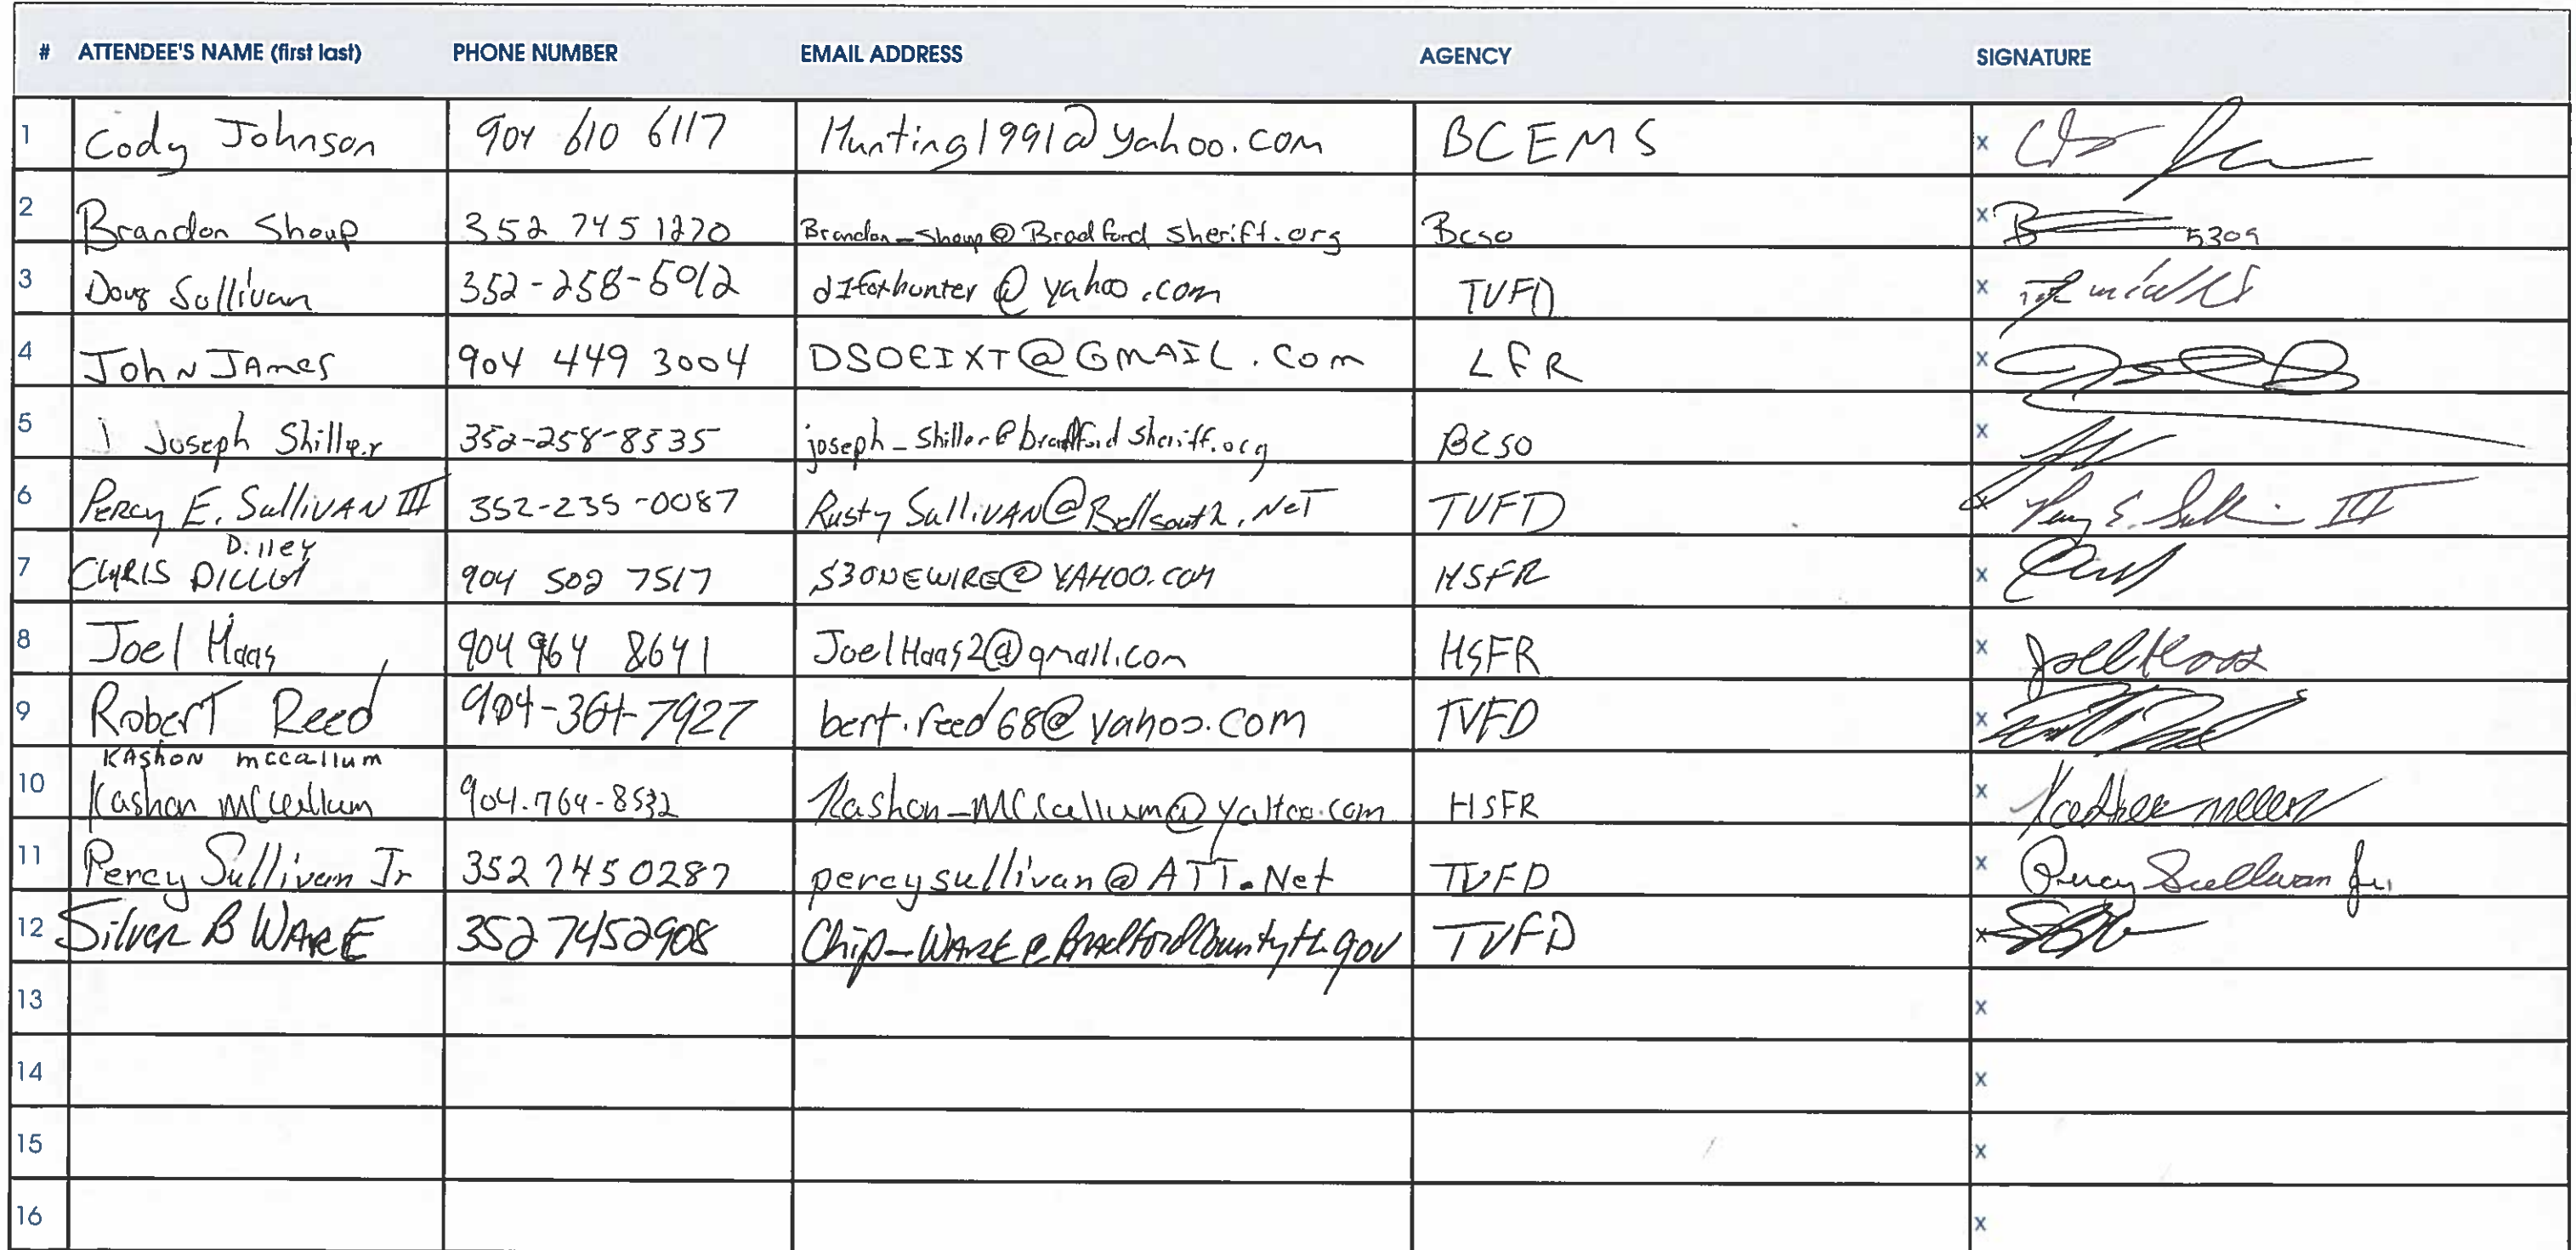 # ATTENDEE'S NAME (first last) PHONE NUMBER EMAIL ADDRESS AGENCY SIGNATURE
1 Cody Johnson 904 610 6117 Hunting1991@yahoo.com BCEMS x
2 Brandon Shoup 352 745 1270 Brandon_Shoup@Bradford Sheriff.org BCSO x 5309
3 Doug Sullivan 352-258-5012 @yahoo.com TVFD x
4 John JAmes 904 449 3004 DSOEIXT@GMAIL.Com LFR x
5 Joseph Shiller 352-258-8535 joseph_Shiller@bradford sheriff.org BCSO x
6 Percy E. SulliVAN III 352-235-0087 Rusty SulliVAN@Bellsouth.NeT TVFD x Percy E. Sullivan III
Dilley
7 CHRIS 904 502 7517 S30NEWIRE@YAHOO.COM HSFR x
8 Joel Haas 904 964 8641 JoelHaas2@gmail.com HSFR x Joel Haas
9 Robert Reed 904-364-7927 bert.reed68@yahoo.com TVFD x
KAshon mccallum
10 Kashon McCallum 904.764-8532 Kashon_McCallum@yahoo.com HSFR x
11 Percy Sullivan Jr 352 745 0287 percysullivan@ATT.Net TVFD x Percy Sullivan Jr.
12 Silver B WARE 352 7452908 Chip_WARE@BradfordCountyfl.gov TVFD x
13 x
14 x
15 x
16 x